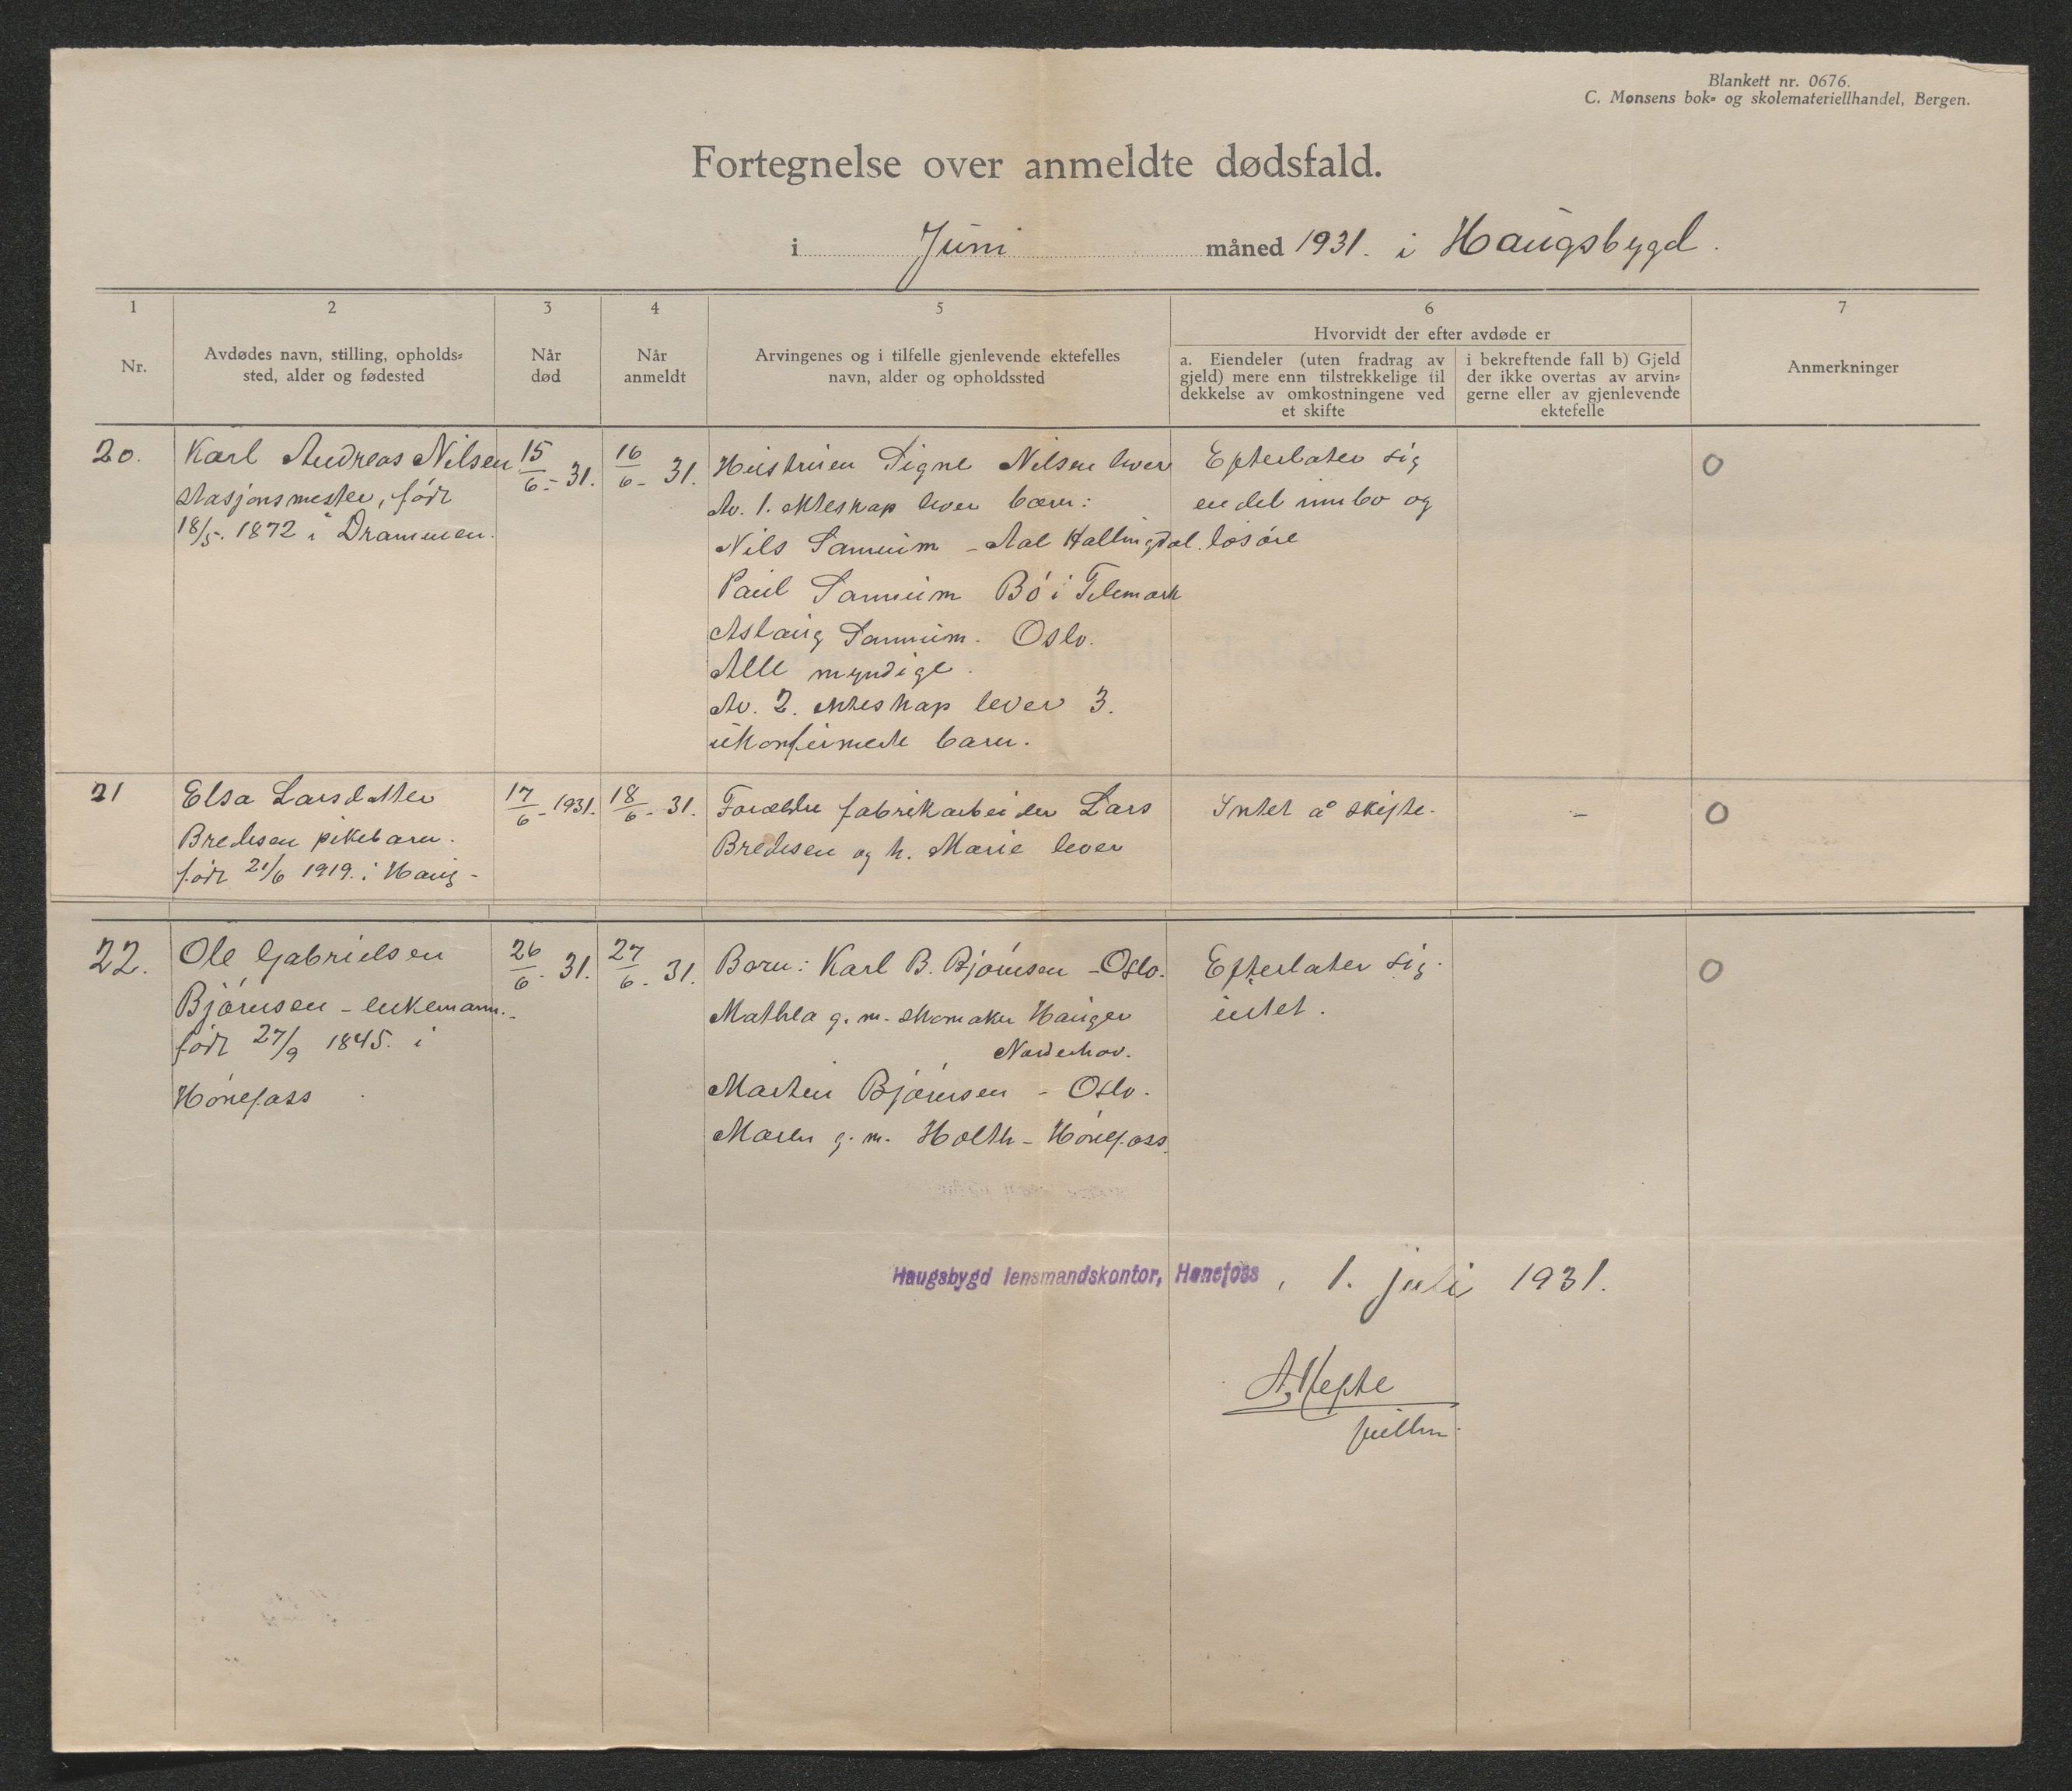 Blankett nr. 0676.
C. Monsens bok- og skolemateriellhandel, Bergen.
Fortegnelse over anmeldte dødsfald.
i Juni måned 1931. i Haugsbygd.
1
2
3
4
5
6
7
Nr.
Avdødes navn, stilling, opholds-
sted, alder og fødested
Når
død
Når
anmeldt
Arvingenes og i tilfelle gjenlevende ektefelles
navn, alder og opholdssted
Hvorvidt der efter avdøde er
a. Eiendeler (uten fradrag av
gjeld) mere enn tilstrekkelige til
dekkelse av omkostningene ved
et skifte
i bekreftende fall b) Gjeld
der ikke overtas av arvin-
gerne eller av gjenlevende
ektefelle
Anmerkninger
20.
Karl Andreas Nilsen
stasjonsmester, født
18/5. 1872 i Drammen.
15/6 - 31.
16/6 - 31.
Hustruen Signe Nilsen lever
Av. 1. ekteskap lever barn:
Nils Sannum - Aal Hallingdal.
Paul Sannum Bó i Telemark
Aslaug Sannum. Oslo.
Alle myndige.
Av. 2. ekteskap lever 3.
ukonfirmerte barn.
Efterlater sig
en del innbo og
løsøre
0
21
Elsa Larsdatter
Bredesen pikebarn.
født 21/6 1919. i Haug -
17/6 - 1931.
18/6 - 31.
Forældre fabrikarbeider Lars
Bredesen og h. Marie lever
Intet å skifte.
-
0
22.
Ole Gabrielsen
Bjórnsen - enkemann.
født 27/9 1845. i
Hónefoss
26/6 - 31.
27/6 - 31.
Barn: Karl B. Bjórnsen - Oslo.
Mathea g. m. skomaker Hauger
Norderhov.
Martin Bjórnsen - Oslo.
Maren g. m. Holth - Hónefoss.
Efterlater sig
intet.
0
Haugsbygd lensmandskontor, Hønefoss, 1. juli 1931.